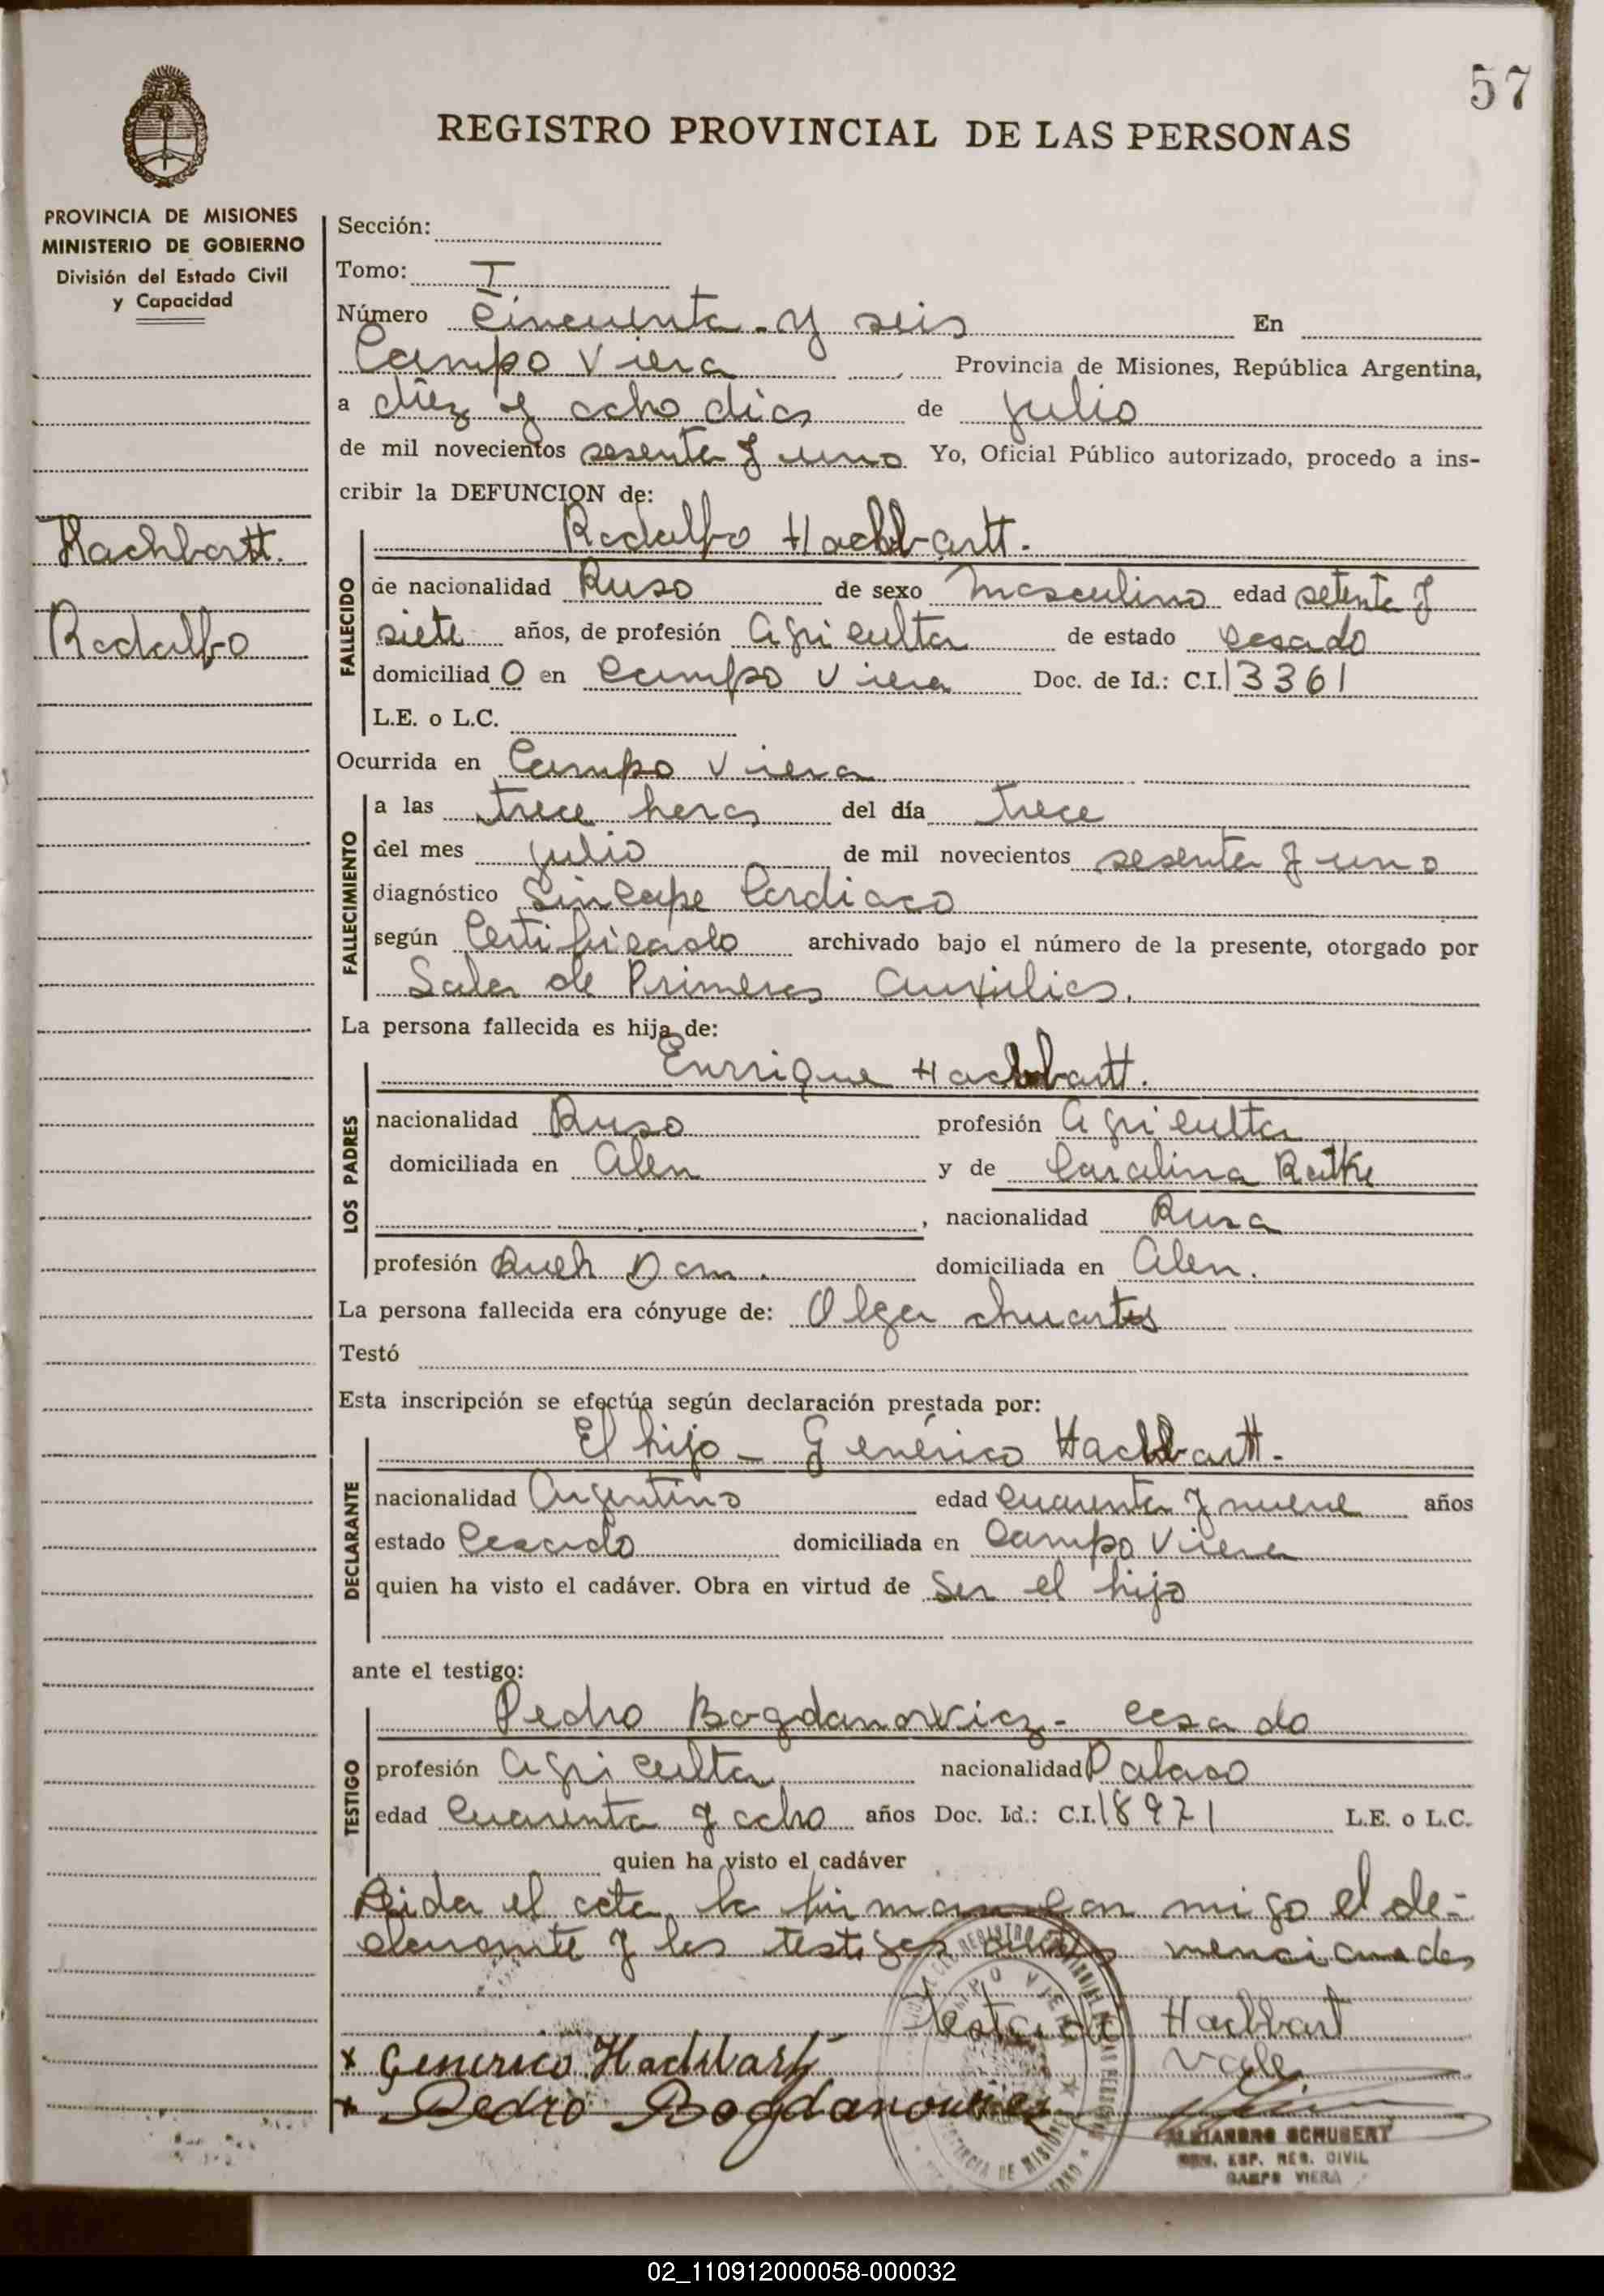 57
REGISTRO PROVINCIAL DE LAS PERSONAS
PROVINCIA DE MISIONES
MINISTERIO DE GOBIERNO
División del Estado Civil
y Capacidad
Hachbartt.
Rodolfo
Sección:
Tomo: I
Número Cincuenta y seis En
Campo Viera Provincia de Misiones, República Argentina,
a diez y ocho dias de julio
de mil novecientos sesenta y uno Yo, Oficial Público autorizado, procedo a ins-
cribir la DEFUNCION de:
Rodolfo Hachbartt.
FALLECIDO
de nacionalidad Ruso de sexo masculino edad setenta y
siete años, de profesión agriculto de estado casado
domiciliad o en Campo Viera Doc. de Id.: C.I. 13361
L.E. o L.C.
Ocurrida en Campo Viera
FALLECIMIENTO
a las trece horas del día trece
del mes julio de mil novecientos sesenta y uno
diagnóstico Sincope Cardiaco
según Certificado archivado bajo el número de la presente, otorgado por
Sala de Primeros Auxilios.
La persona fallecida es hija de:
Enrrique Hachbartt.
LOS PADRES
nacionalidad Ruso profesión agriculto
domiciliada en Alen y de Carolina Ratke
, nacionalidad Rusa
profesión Queh Dom. domiciliada en Alen.
La persona fallecida era cónyuge de: Olga
Testó
Esta inscripción se efectúa según declaración prestada por:
El hijo - Genérico Hachbartt.
DECLARANTE
nacionalidad Argentino edad cuarenta y nueve años
estado Casado domiciliada en Campo Viera
quien ha visto el cadáver. Obra en virtud de Ser el hijo
ante el testigo:
Pedro Bogdanowicz - casado
TESTIGO
profesión agriculto nacionalidad Polaco
edad Cuarenta y ocho años Doc. Id.: C.I. 18971 L.E. o L.C.
quien ha visto el cadáver
Leida el acta, la firman con migo el de-
clarante y los testigos mencionados
Testado Hachbart
Vale
x Generico Hachbartt
x Pedro Bogdanowicz
ALEJANDRO SCHUBERT
ESP. REG. CIVIL
CAMPO VIERA
02_110912000058-000032